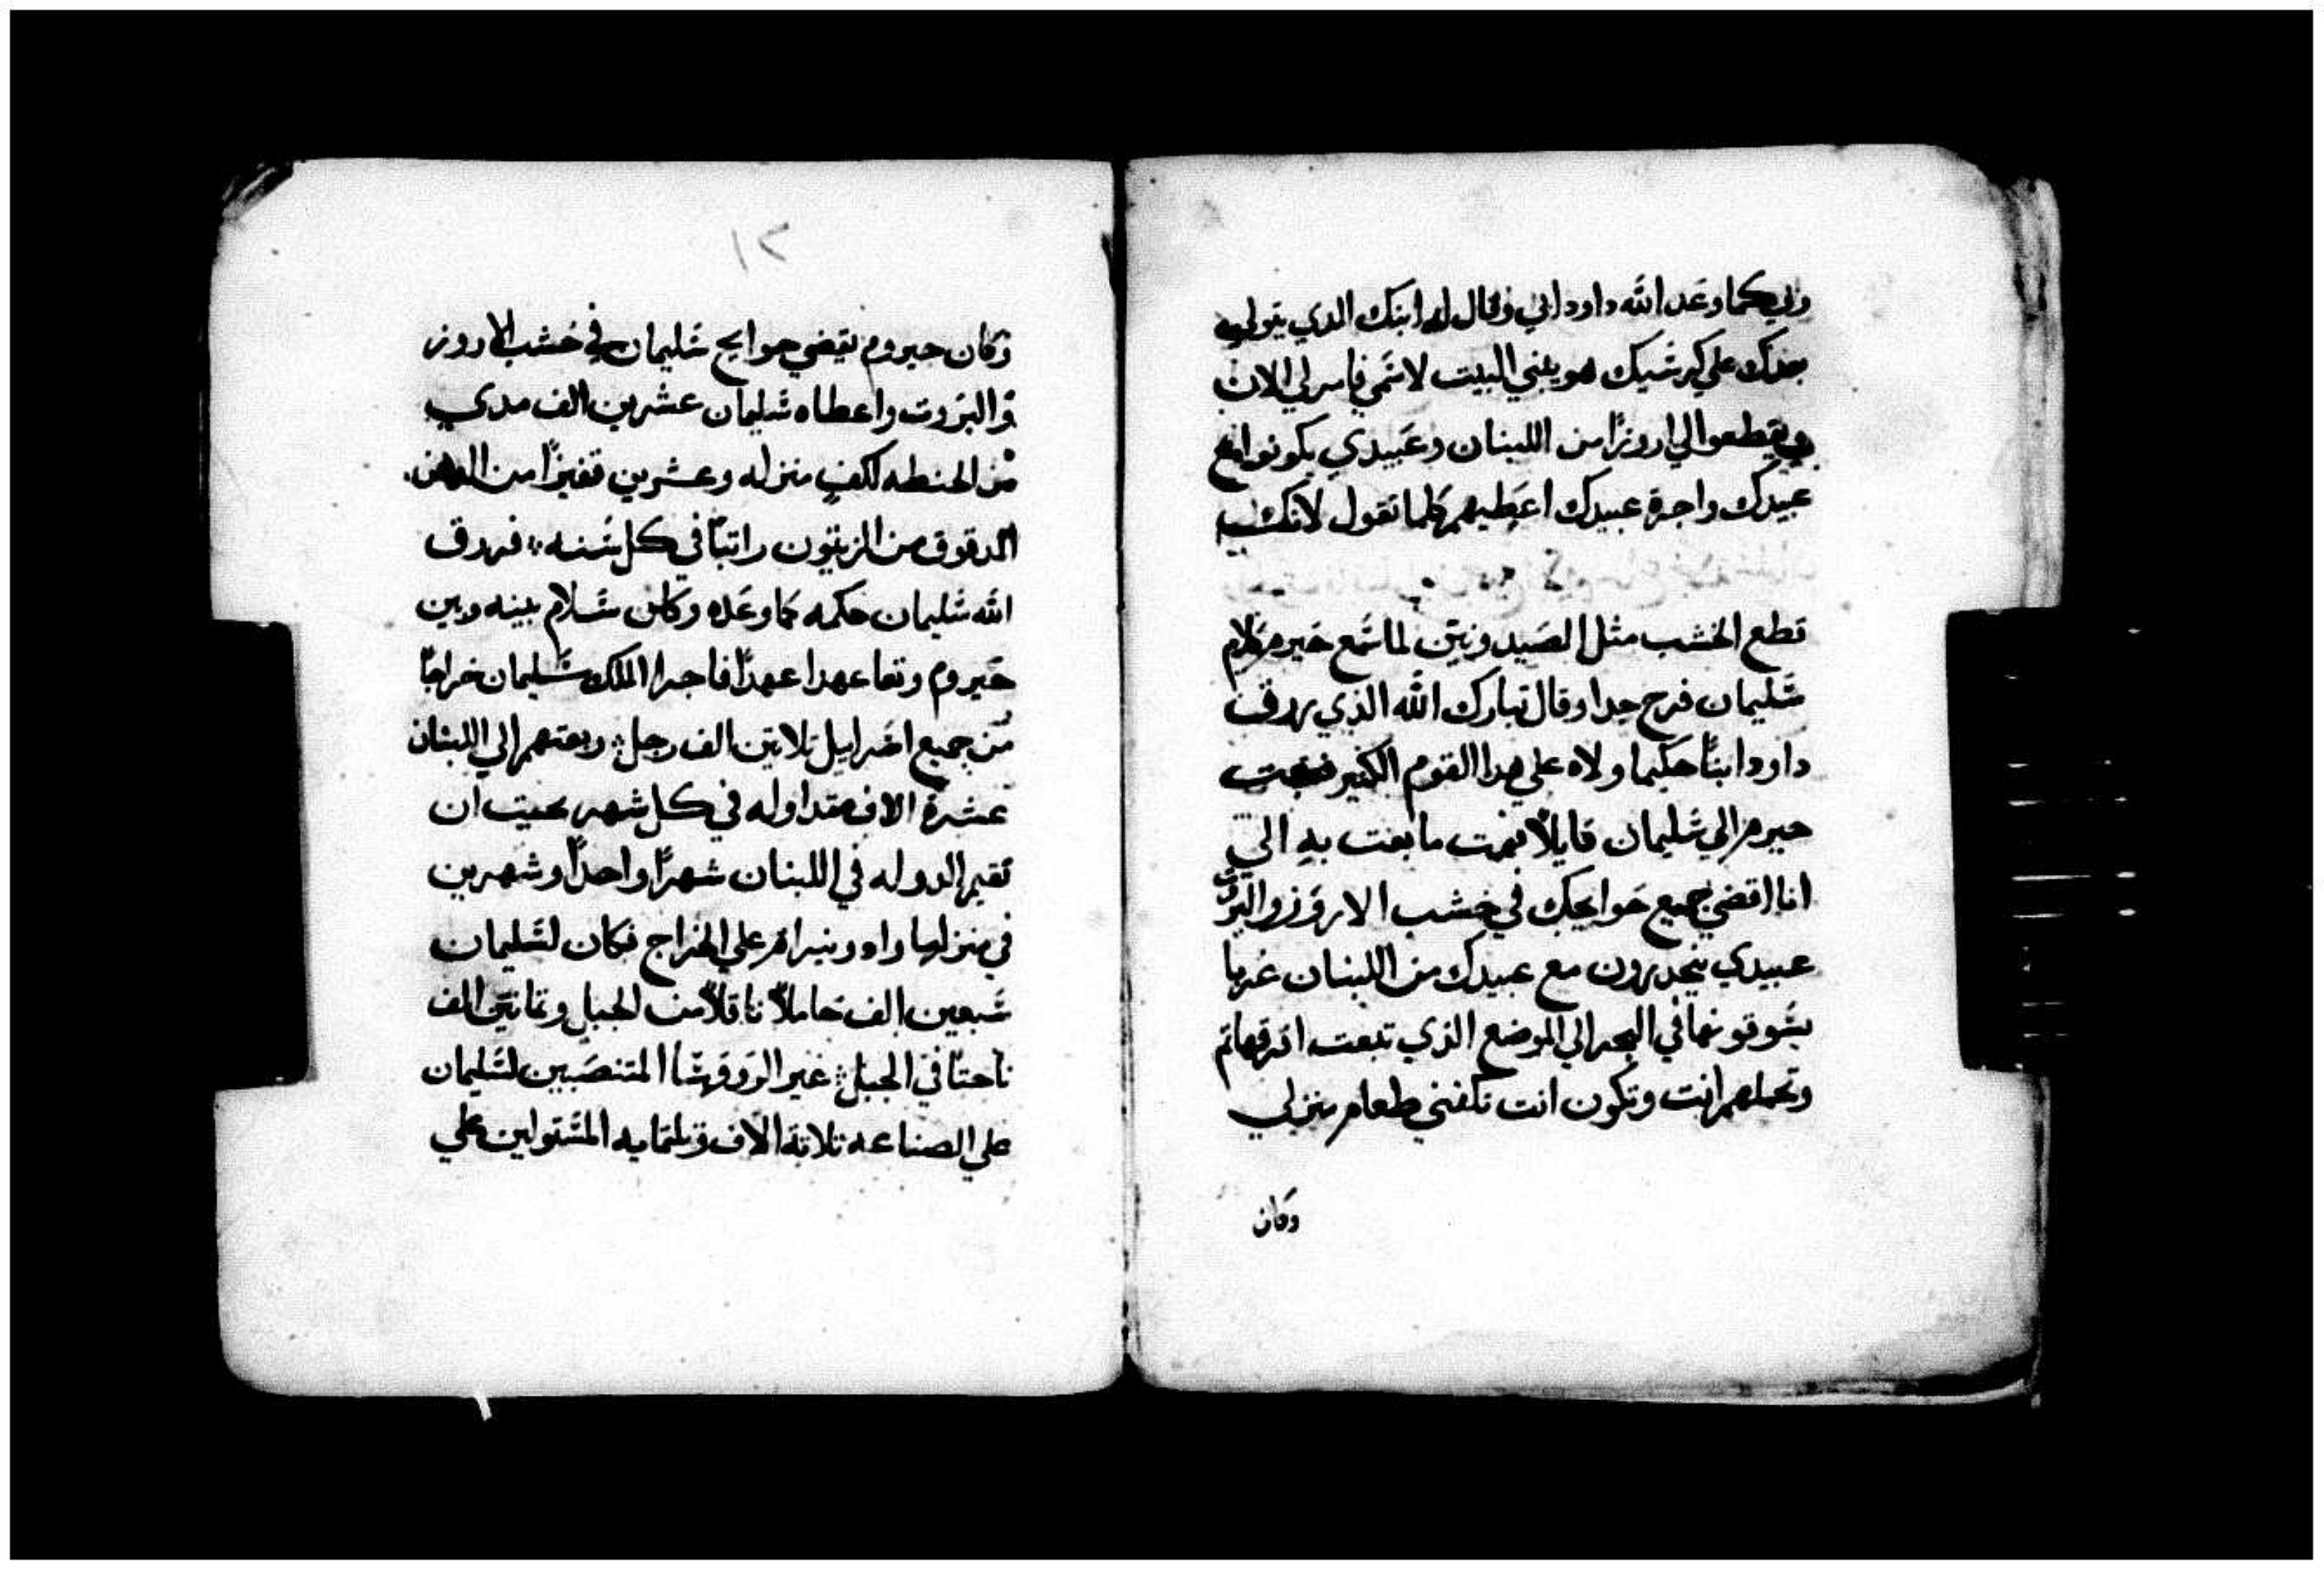 وليكما وعد الله داود ابي وقال له ابنك الدي يتولي
بعدك علي كرسيك هو يبني البيت لاسمي فامر لي الان
ويقطعوا لي اروزا من اللبنان وعبيدي يكونوا مع
عبيدك واجرة عبيدك اعطيهم كلما تقول لانك
قطع الخشب مثل الصيدونيين لما سمع حيرم كلام
سليمان فرح جدا وقال تبارك الله الذي رزق
داود ابنًا حكيما ولاه علي هدا القوم الكتير فبعت
حيرم الي سليمان قايلًا فهمت ما بعت به الي
انا اقضي جميع حوايجك في خشب الاروز والبروت
عبيدي ينحدرون مع عبيدك من اللبنان
يسوقونها في البحر الي الموضع الذي تبعت
وتحملهم انت وتكون انت تكفني طعام منزلي
وكان
١٢
وكان حيروم يقضي حوايج سليمان في خشب الاروز
والبروت واعطاه سليمان عشرين الف مدي
من الحنطه لكفي منزله وعشرين قفيزًا من الدهن
المدقوق من الزيتون راتبًا في كل سنه فرزق
الله سليمان حكمه كما وعده وكان سلام بينه وبين
حيروم وتعاهدا عهدًا فاجرا الملك سليمان خراجًا
من جميع اسراييل تلاتين الف رجل وبعتهم الي اللبنان
عشرة الاف متداوله في كل شهر بحيت ان
تقيم الدوله في اللبنان شهرًا واحدًا وشهرين
في منزلها وادونيرام علي الخراج فكان لسليمان
سبعين الف حاملًا ناقلًا من الجبل وتمانين الف
ناحتًا في الجبل غير الروسا المتنصبين لسليمان
علي الصناعه تلاتة الاف وتلتمايه المستولين علي